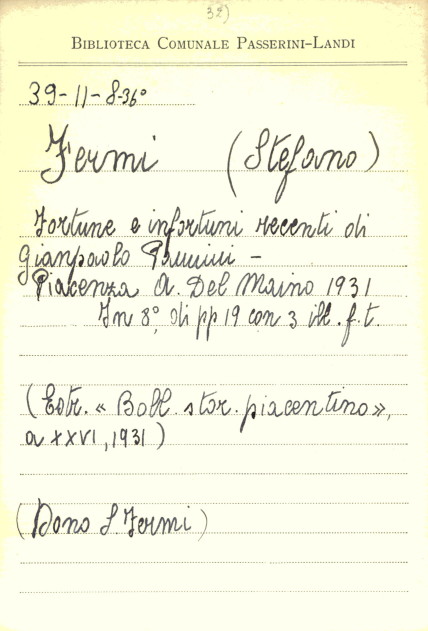 32)
BIBLIOTECA COMUNALE PASSERINI-LANDI
39-11-8-36°
Fermi (Stefano)
Fortune e infortuni recenti di
Gianpaolo Pannini -
Piacenza A. Del Maino 1931
In 8°, di pp 19 con 3 ill. f. t.
(Estr. « Boll. stor. piacentino»,
a XXVI, 1931)
(Dono S. Fermi)